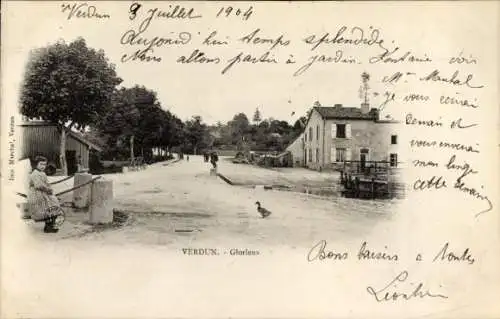 Verdun 3 Juillet 1904
Aujourd'hui temps splendide.
Nous allons partir jardin
voir
Mme
je vous verrai
demain et
vous enverrai
mon linge
cette semaine
Imp. Marchal, Verdun
VERDUN. - Glorieux
Bons baisers à tous